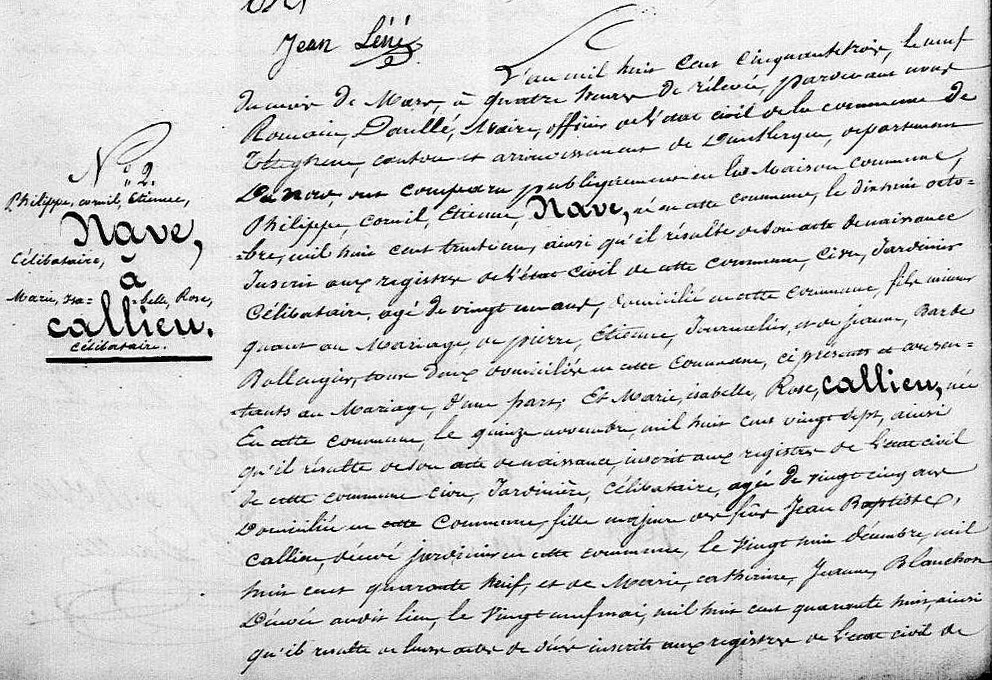 Jean Séné
N.° 2.
Philippe, cornil, Etienne,
Nave,
Célibataire,
à
Marie, isa- -belle, Rose,
callieu.
Célibataire.
L'an mil huit cent cinquante trois, le neuf
du mois de Mars, à quatre heures de rélevée, pardevant nous
Romain, Maire, officier de l'état civil de la commune de
Téteghem, canton et arrondissement de Dunkerque, département
Du Nord, est comparu publiquement en la Maison commune,
Philippe, Cornil, Etienne, Nave, né en cette commune, le dix huit octo-
-bre, mil huit cent trente un, ainsi qu'il résulte de son acte de naissance
Inscrit aux registres de l'état civil de cette commune, Jardinier
Célibataire, agé de vingt un ans, domicilié en cette commune, fils mineur
quant au Mariage, de pierre, Etienne, Journalier, et de jeanne, Barbe
Bollengier, tous deux domiciliés en cette Commune, ci présents et consen-
-tants au Mariage, d'une part; Et Marie, isabelle, Rose, callieu, née
En cette commune, le quinze novembre, mil huit cent vingt sept, ainsi
qu'il résulte de son acte de naissance, inscrit aux registres de l'état civil
de cette commune Jardinière, Célibataire, agée de vingt cinq ans
Domiciliée en cette Commune, fille majeure des feus Jean Baptiste,
Callieu, décédé jardinier en cette commune, le vingt huit décembre, mil
huit cent quarante neuf, et de Marie, catherine, Jeanne, Blanchon
Décédée audit lieu, le vingt neuf mai, mil huit cent quarante huit, ainsi
qu'il résulte de leurs actes de décès inscrits aux registres de l'état civil de